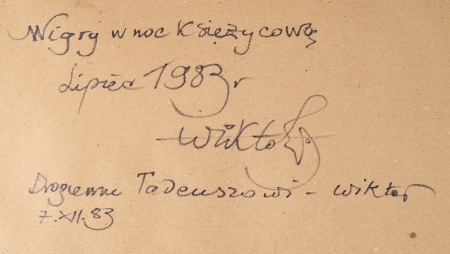 Wigry w noc Księżycową
Lipiec 1983 r
Wiktor
Drogiemu Tadeuszowi - Wiktor
7.XII.83